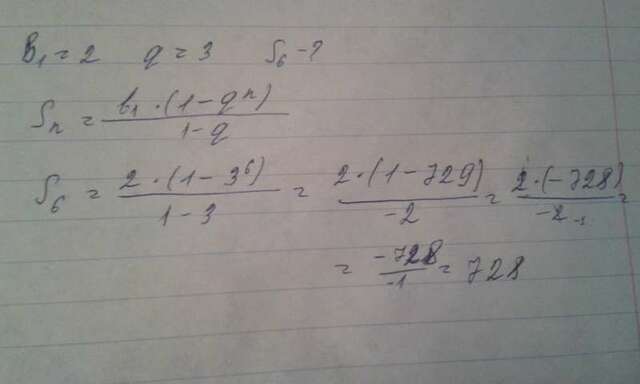 B₁ = 2 q = 3 S₆ - ?
Sₙ = b₁ · (1 - qⁿ) / 1 - q
S₆ = 2 · (1 - 3⁶) / 1 - 3 = 2 · (1 - 729) / -2 = 2 · (-728) / -2 =
= -728 / -1 = 728